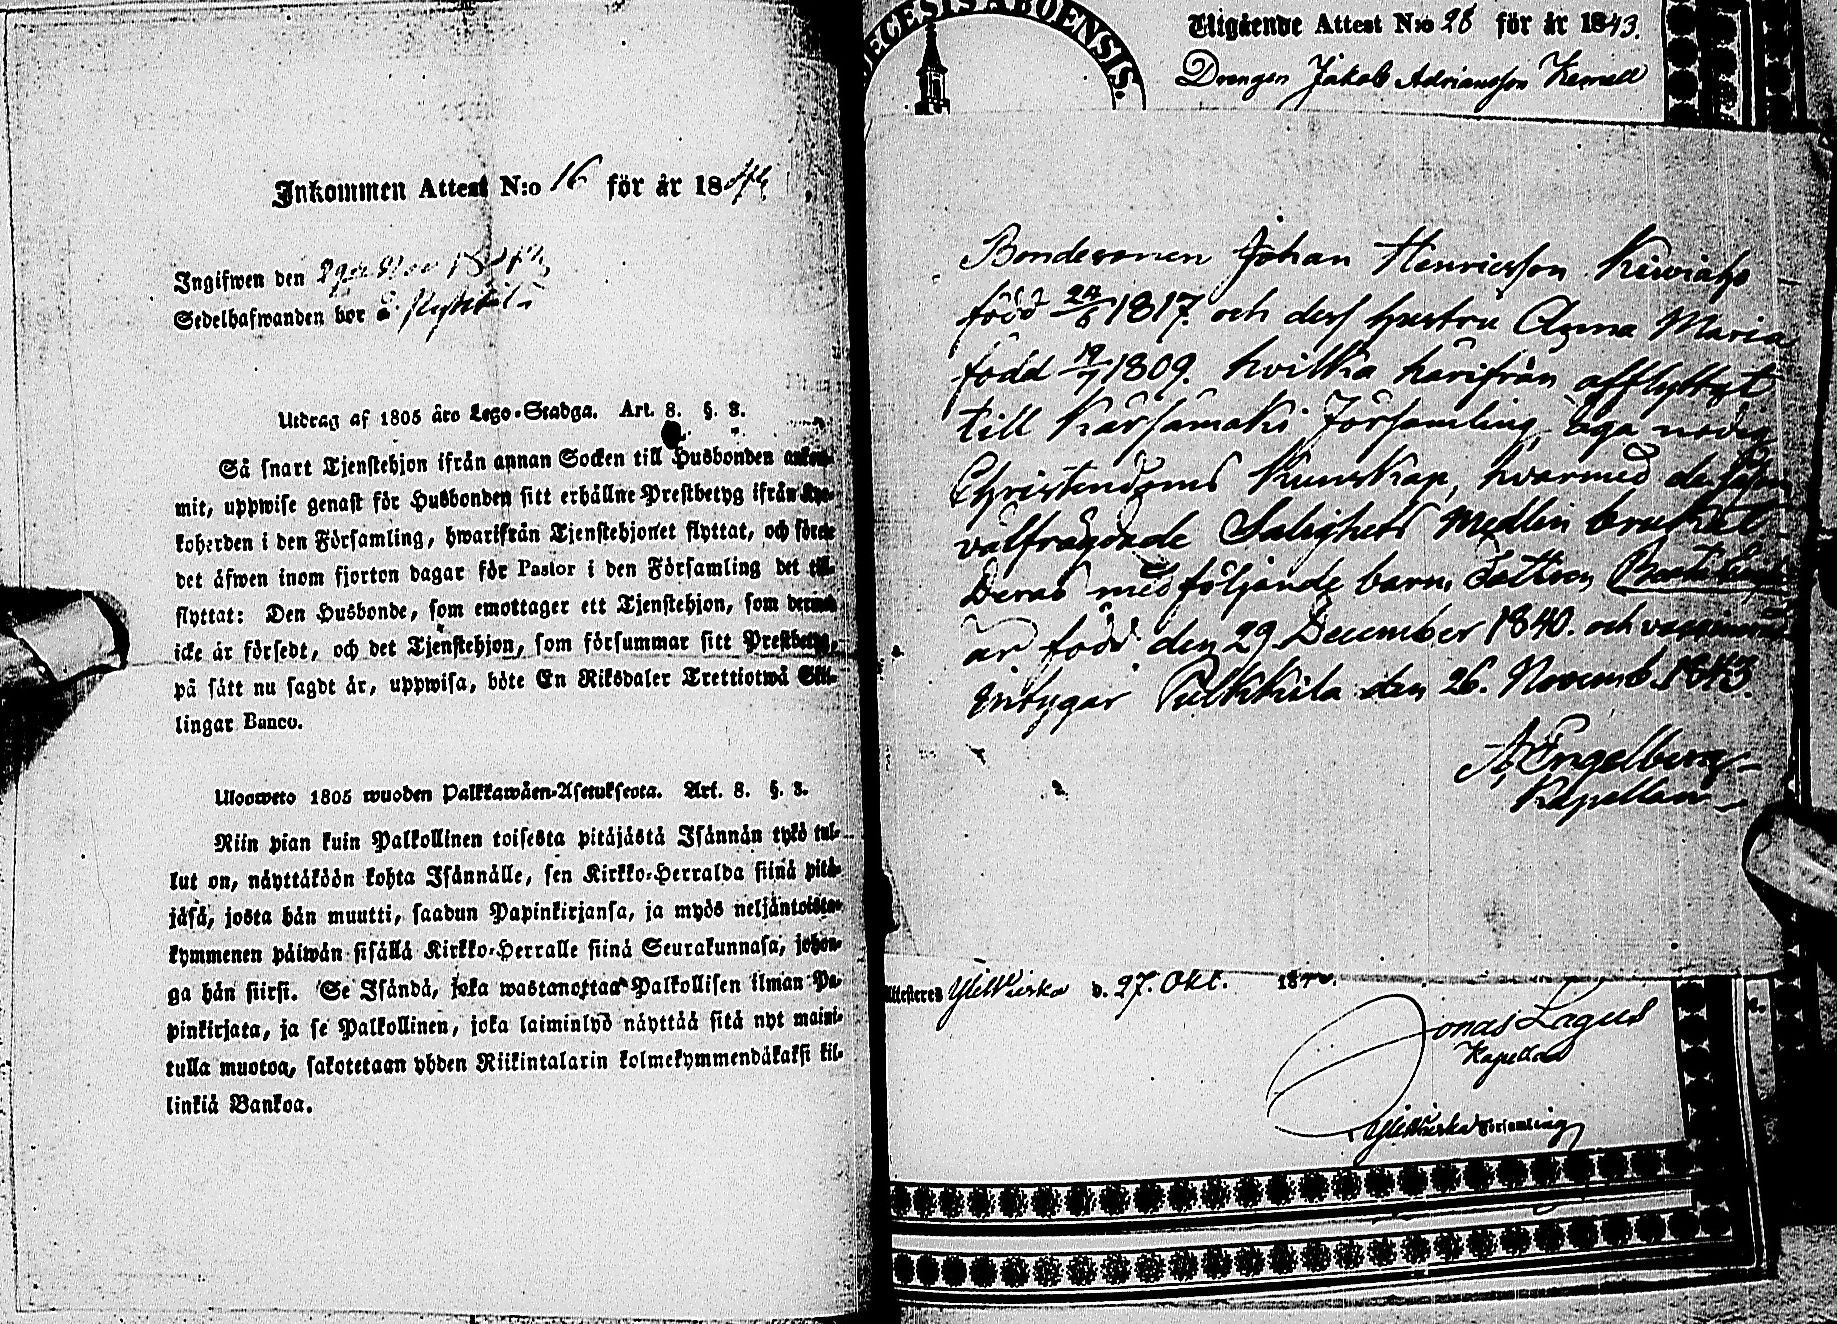 Inkommen Attest N:o 16 för år 18
Ingifwen den
Sedelhafwanden bor å
Utdrag af 1805 åro Lego-Stadga. Art. 8. §. 8.
Så snart Tjenstehjon ifrån annan Socken till Husbonden ankom-
mit, uppwise genast för Husbonden sitt erhållne Prestbetyg ifrån Kyr-
koherden i den Församling, hwarifrån Tjenstehjonet flyttat, och förete
det äfwen inom fjorton dagar för Pastor i den Församling det till-
flyttat: Den Husbonde, som emottager ett Tjenstehjon, som dermed
icke är försedt, och det Tjenstehjon, som försummar sitt Prestbetyg,
på sätt nu sagdt är, uppwisa, böte En Riksdaler Trettiotwå Skil-
lingar Banco.
Ulosweto 1805 wuoden Palkkawäen-Asetuksesta. Art. 8. §. 8.
Niin pian kuin Palkollinen toisesta pitäjästä Isännän tykö tul-
lut on, näyttäköön kohta Isännälle, sen Kirkko-Herralda siinä pitä-
jäsä, josta hän muutti, saadun Papinkirjansa, ja myös neljäntoista-
kymmenen päiwän sisällä Kirkko-Herralle siinä Seurakunnasa, johon-
ga hän siirsi. Se Isändä, joka wastanottaa Palkollisen ilman Pa-
pinkirjata, ja se Palkollinen, joka laiminlyö näyttää sitä nyt maini-
tulla muotoa, sakotetaan yhden Riikintalarin kolmekymmendäkaksi kil-
linkiä Bankoa.
ECESIS ABOENSIS.
Utgående Attest N:o 28 för år 1843.
Drengen Jakob Adriansson
Bondesonen Johan Henricsson Kiwiaho
född 1817. och dess hustru Anna Maria
född 19/7 1809. hvilka härifrån afflyttat
till Kärsämäki Församling, äga nödig
Christendoms Kunskap, hvarmed de
välfrägdade Salighets Medlen brukat
Deras medföljande barn, Dottren
är född den 29 December 1840. och
intygar Pulkkila den 26. Novemb. 1843.
A. Engelberg
Kapellan
Attesteras Ylivieska d. 27. Okt. 18
Jonas Lagus
Kapellan
Ylivieska Församling